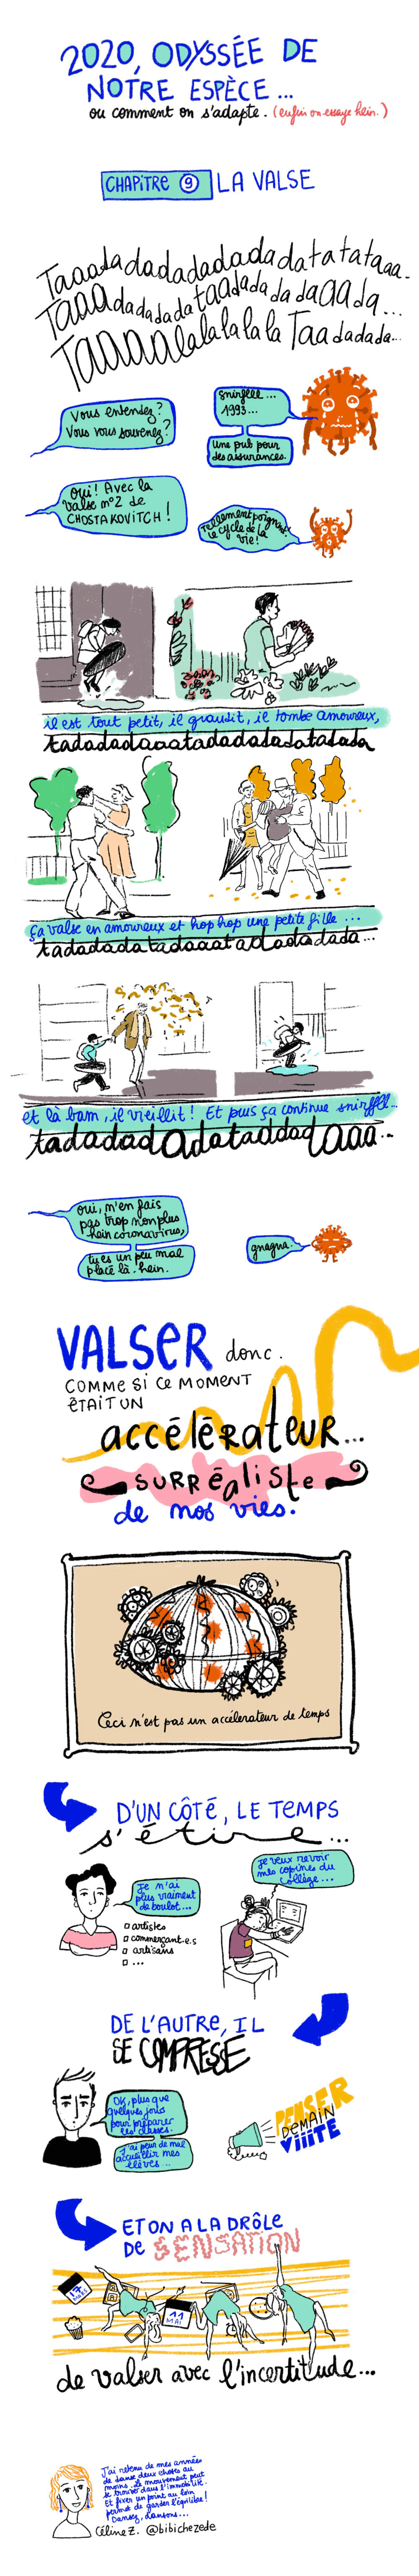 2020, ODYSSÉE DE
NOTRE ESPÈCE...
ou comment on s'adapte. (enfin on essaye hein.)
CHAPITRE 9 LA VALSE
Taaadadadadadadadadatatataaa..
Taaadadadadataadadadadaaada...
Taaaaalalalalala Taadadada...
Vous entendez?
Vous vous souvenez?
snirflll...
1993...
une pub pour
des assurances.
Oui! Avec la
valse n°2 de
CHOSTAKOVITCH!
tellement poignant
le cycle de la
vie!
il est tout petit, il grandit, il tombe amoureux,
tadadadaaatadadadadatadada
ça valse en amoureux et hop hop une petite fille ...
tadadadadatadaaatadadadadada...
et là bam, il vieillit! Et puis ça continue snirffll..
tadadadadadatadddadaaa...
oui, m'en fais
pas trop non plus
hein coronavirus,
tu es un peu mal
placé là. hein.
gnagna.
VALSER donc.
COMME SI CE MOMENT
ÉTAIT UN
accélérateur...
surréaliste
de nos vies.
Ceci n'est pas un accélérateur de temps
D'UN CÔTÉ, LE TEMPS
s'étire...
Je n'ai
plus vraiment
de boulot...
artistes
commerçant.e.s
artisans
...
Je veux revoir
mes copines du
collège...
DE L'AUTRE, IL
SE COMPRESSE
OK, plus que
quelques jours
pour préparer
les classes.
J'ai peur de mal
accueillir mes
élèves...
PENSER
DEMAIN
VIIITE
ET ON A LA DRÔLE
DE SENSATION
17
MARS
11
MAI
de valser avec l'incertitude...
J'ai retenu de mes années
de danse deux choses au
moins. Le mouvement peut
se trouver dans l'immobilité.
Et fixer un point au loin
permet de garder l'équilibre!
Dansez, dansons...
Céline Z. @bibichezede